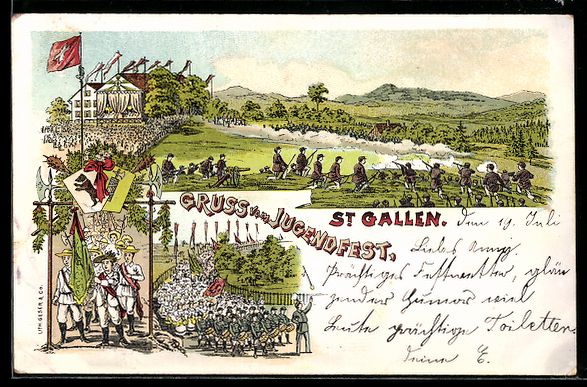 GRUSS vom JUGENDFEST,
ST GALLEN.
den 19. Juli
Liebes Anny.
Prächtiges Festwetter, glän
zender Humor viel
Leute prächtige Toiletten
deine E.
LITH. GESER & Co.